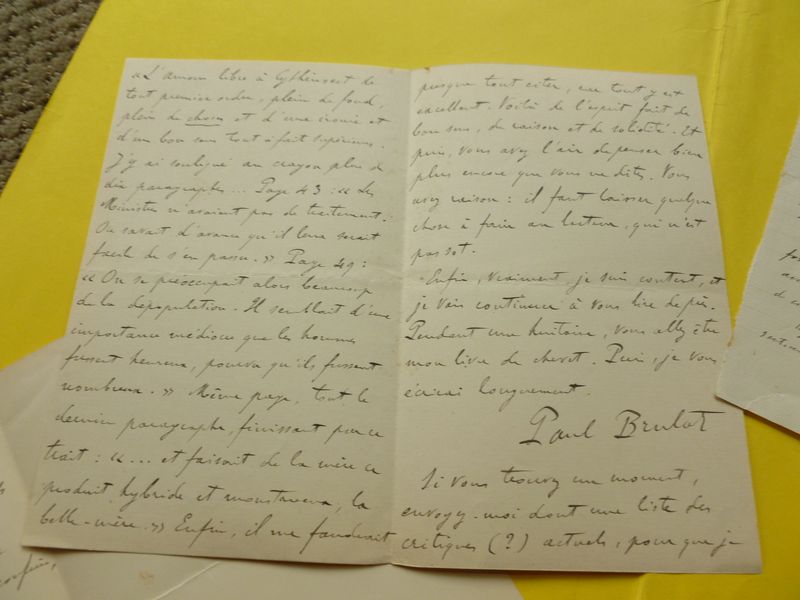 « L'amour libre à Cythère est de
tout premier ordre, plein de fond,
plein de choses et d'une ironie et
d'un bon sens tout à fait supérieurs.
J'y ai souligné au crayon plus de
dix paragraphes... Page 43 : « Les
Ministres n'avaient pas de traitement.
On savait d'avance qu'il leur serait
facile de s'en passer. » Page 49 :
« On se préoccupait alors beaucoup
de la dépopulation. Il semblait d'une
importance médiocre que les hommes
fussent heureux, pourvu qu'ils fussent
nombreux. » Même page, tout le
dernier paragraphe, finissant par ce
trait : « ... et faisait de la mère ce
produit hybride et monstrueux, la
belle-mère. » Enfin, il me faudrait
presque tout citer, car tout y est
excellent. Voilà de l'esprit fait de
bon sens, de raison et de solidité. Et
puis, vous avez l'air de penser bien
plus encore que vous ne dites. Vous
avez raison : il faut laisser quelque
chose à faire au lecteur, qui n'est
pas sot.
Enfin, vraiment, je suis content, et
je vais continuer à vous lire de près.
Pendant une huitaine, vous allez être
mon livre de chevet. Puis, je vous
écrirai longuement.
Paul Brulat
Si vous trouvez un moment,
envoyez-moi donc une liste des
critiques (?) actuels, pour que je